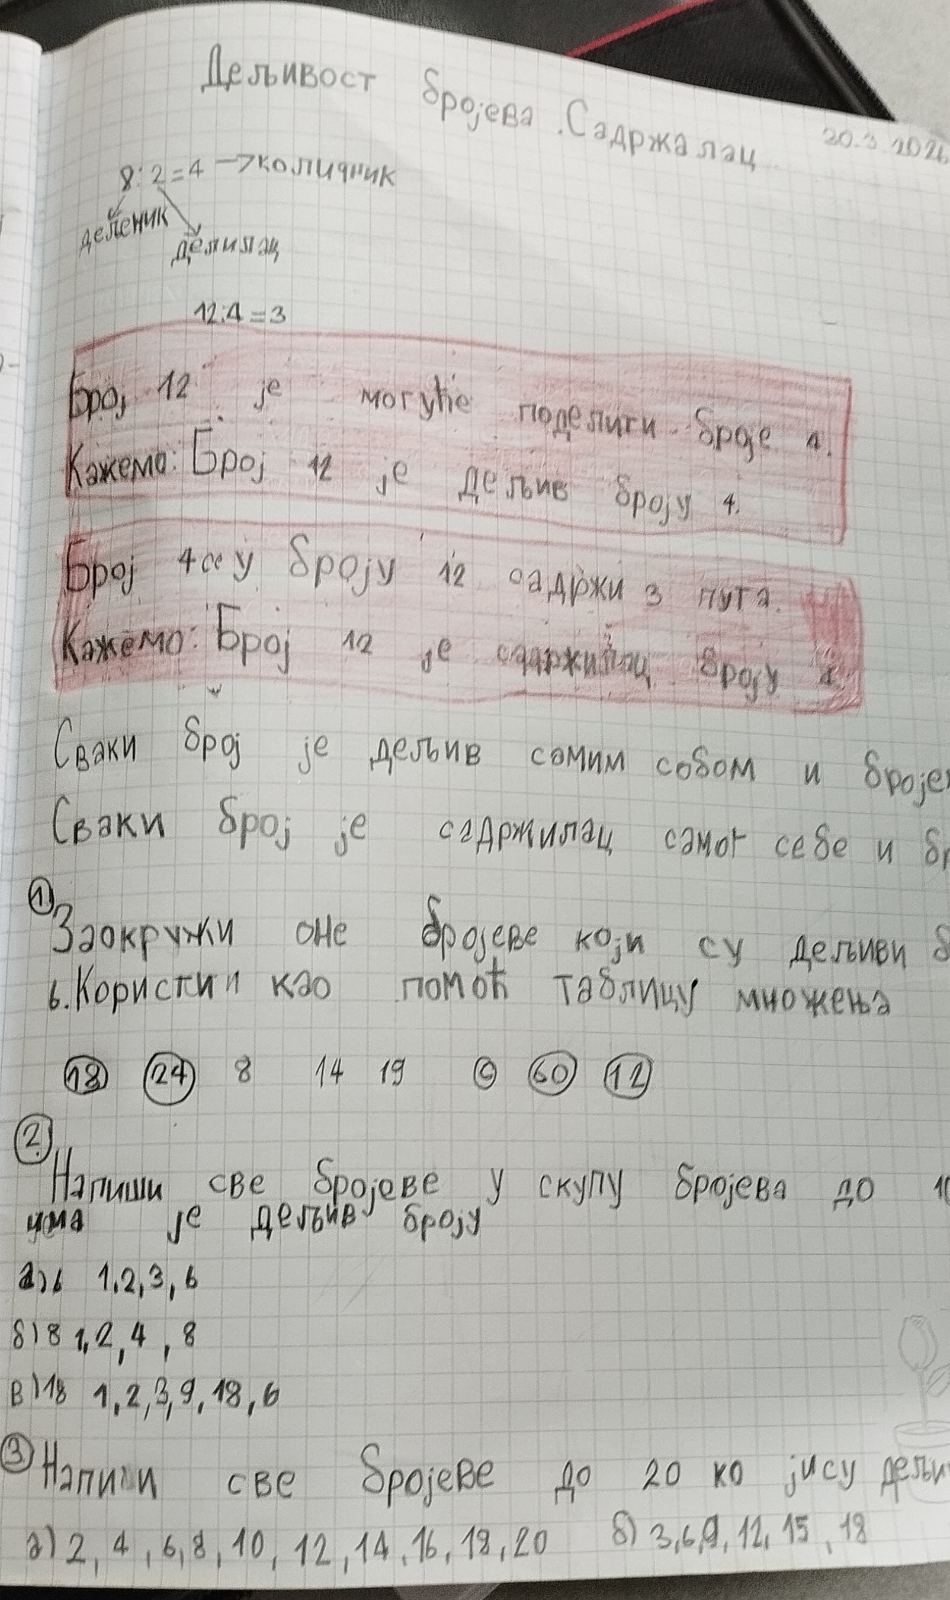 Дељивост бројева. Садржалац
30.3.2026
8:2=4 →количник
дељеник
делилац
12:4=3
Број 12 је могуће поделити броје 4.
Кажемо: Број 12 је дељив броју 4.
Број 4 се у броју 12 садржи 3 пута.
Кажемо: Број 12 је садржилац броју 4.
Сваки број је дељив самим собом и
Сваки број је садржилац самог себе и
1
Заокружи оне бројеве који су дељиви
6. Користи и као помоћ таблицу множења
18 24 8 14 19 6 60 12
2
Напиши све бројеве у скупу бројева до
је дељив броју
а) 6 1,2,3,6
б) 8 1,2,4,8
в) 18 1,2,3,9,18,6
3 Напиши све бројеве до 20 ко јису
а) 2, 4, 6, 8, 10, 12, 14, 16, 18, 20 б) 3,6,9,12,15,18